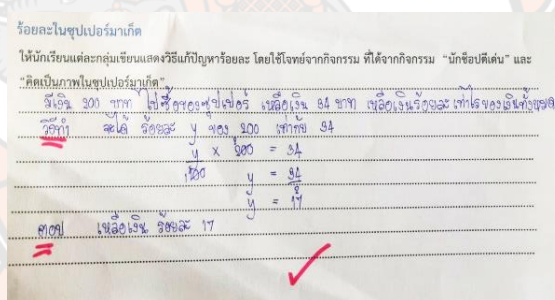 ร้อยละในซุปเปอร์มาเก็ต
ให้นักเรียนแต่ละกลุ่มเขียนแสดงวิธีแก้ปัญหาร้อยละ โดยใช้โจทย์จากกิจกรรม ที่ได้จากกิจกรรม “นักช็อปดีเด่น” และ
“คิดเป็นภาพในซุปเปอร์มาเก็ต”
มีเงิน 200 บาท ไปซื้อของซุปเปอร์ เหลือเงิน 34 บาท เหลือเงินร้อยละเท่าไรของเงินทั้งหมด
วิธีทำ จะได้ ร้อยละ y ของ 200 เท่ากับ 34
y/100 × 200 = 34
y = 34/2
y = 17
ตอบ เหลือเงิน ร้อยละ 17